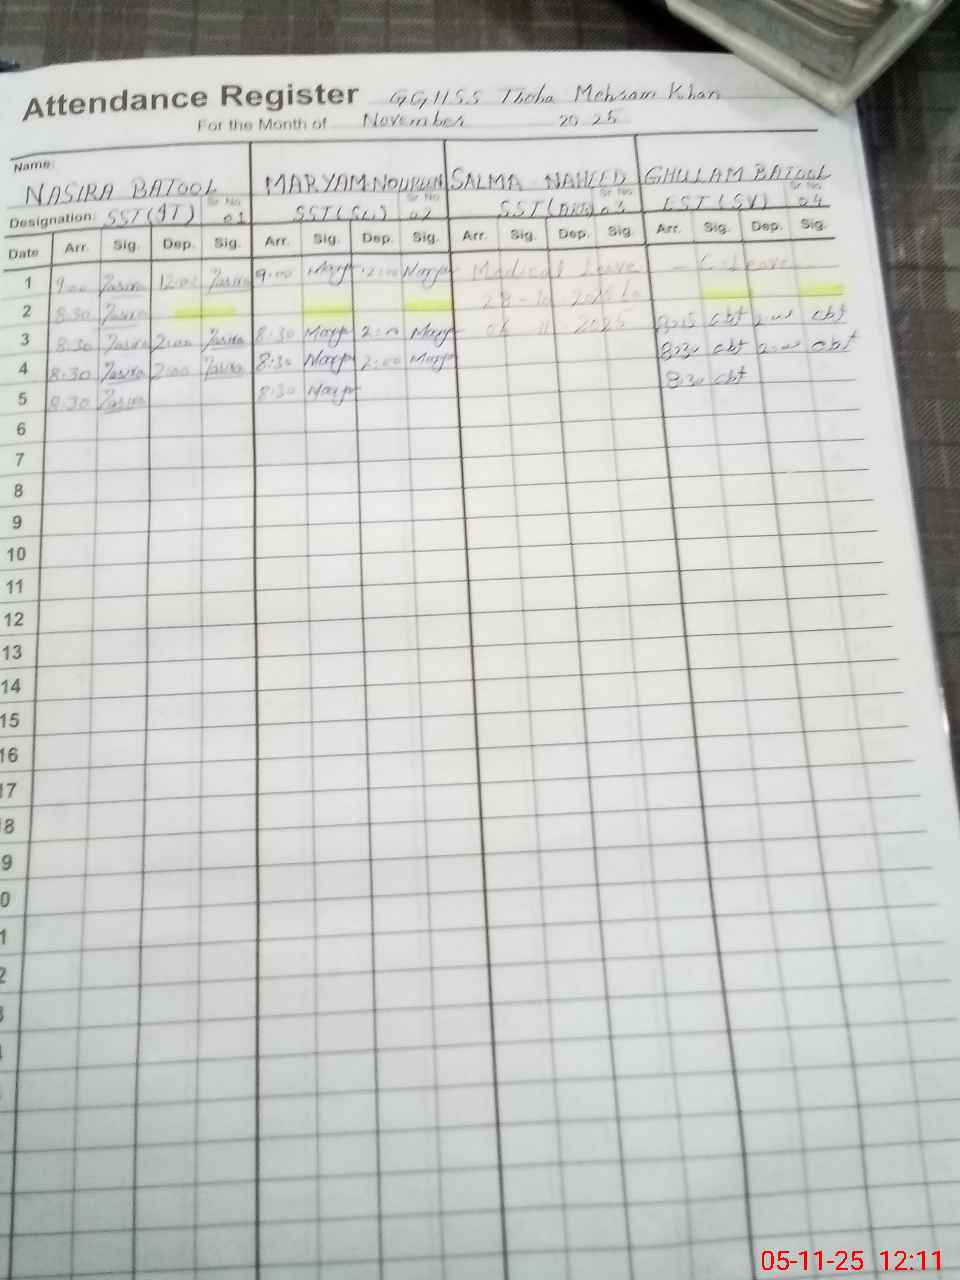 Attendance Register GGHSS Thoha Mehram Khan
For the Month of November 2025
Name:
NASIRA BATOOL MARYAM NOUREEN SALMA NAHEED GHULAM BATOOL
Sr No Sr No Sr No Sr No
Designation: SST(IT) 01 SST(Sc) 02 SST(Arts) 03 EST(SV) 04
Date Arr. Sig. Dep. Sig. Arr. Sig. Dep. Sig. Arr. Sig. Dep. Sig. Arr. Sig. Dep. Sig.
1 9:00 Nasira 12:00 Nasira 9:00 12:00 Medical Leave Leave
2 8:30 Nasira 28-10-2025 to
3 8:30 Nasira 2:00 Nasira 8:30 2:00 2025 8:15 2:00
4 8:30 Nasira 2:00 Nasira 8:30 2:00 8:30 2:00
5 8:30 Nasira 8:30 8:30
6
7
8
9
10
11
12
13
14
15
16
17
8
9
0
1
2
3
05-11-25 12:11